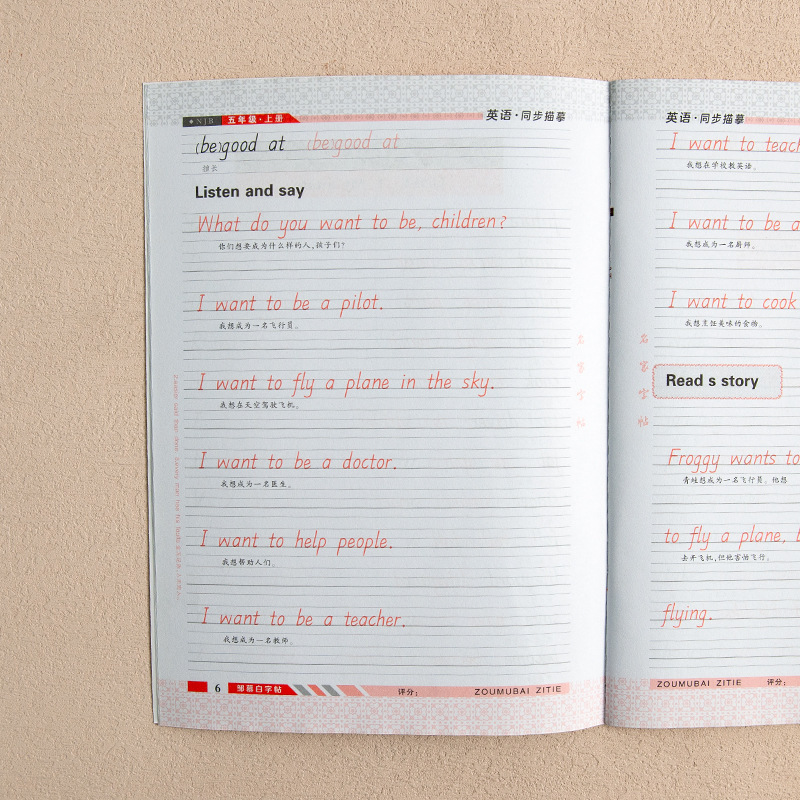 NJB 五年级·上册 英语·同步描摹
(be)good at (be)good at
擅长
Listen and say
What do you want to be, children?
你们想要成为什么样的人,孩子们?
I want to be a pilot.
我想成为一名飞行员。
I want to fly a plane in the sky.
我想在天空驾驶飞机。
I want to be a doctor.
我想成为一名医生。
I want to help people.
我想帮助人们。
I want to be a teacher.
我想成为一名教师。
名家字帖
6 邹慕白字帖 评分: ZOUMUBAI ZITIE
英语·同步描摹
I want to teach
我想在学校教英语。
I want to be a
我想成为一名厨师。
I want to cook
我想烹饪美味的食物。
名家字帖
Read s story
Froggy wants to
青蛙想成为一名飞行员。他想
to fly a plane,
去开飞机,但他害怕飞行。
flying.
ZOUMUBAI ZITIE 评分: